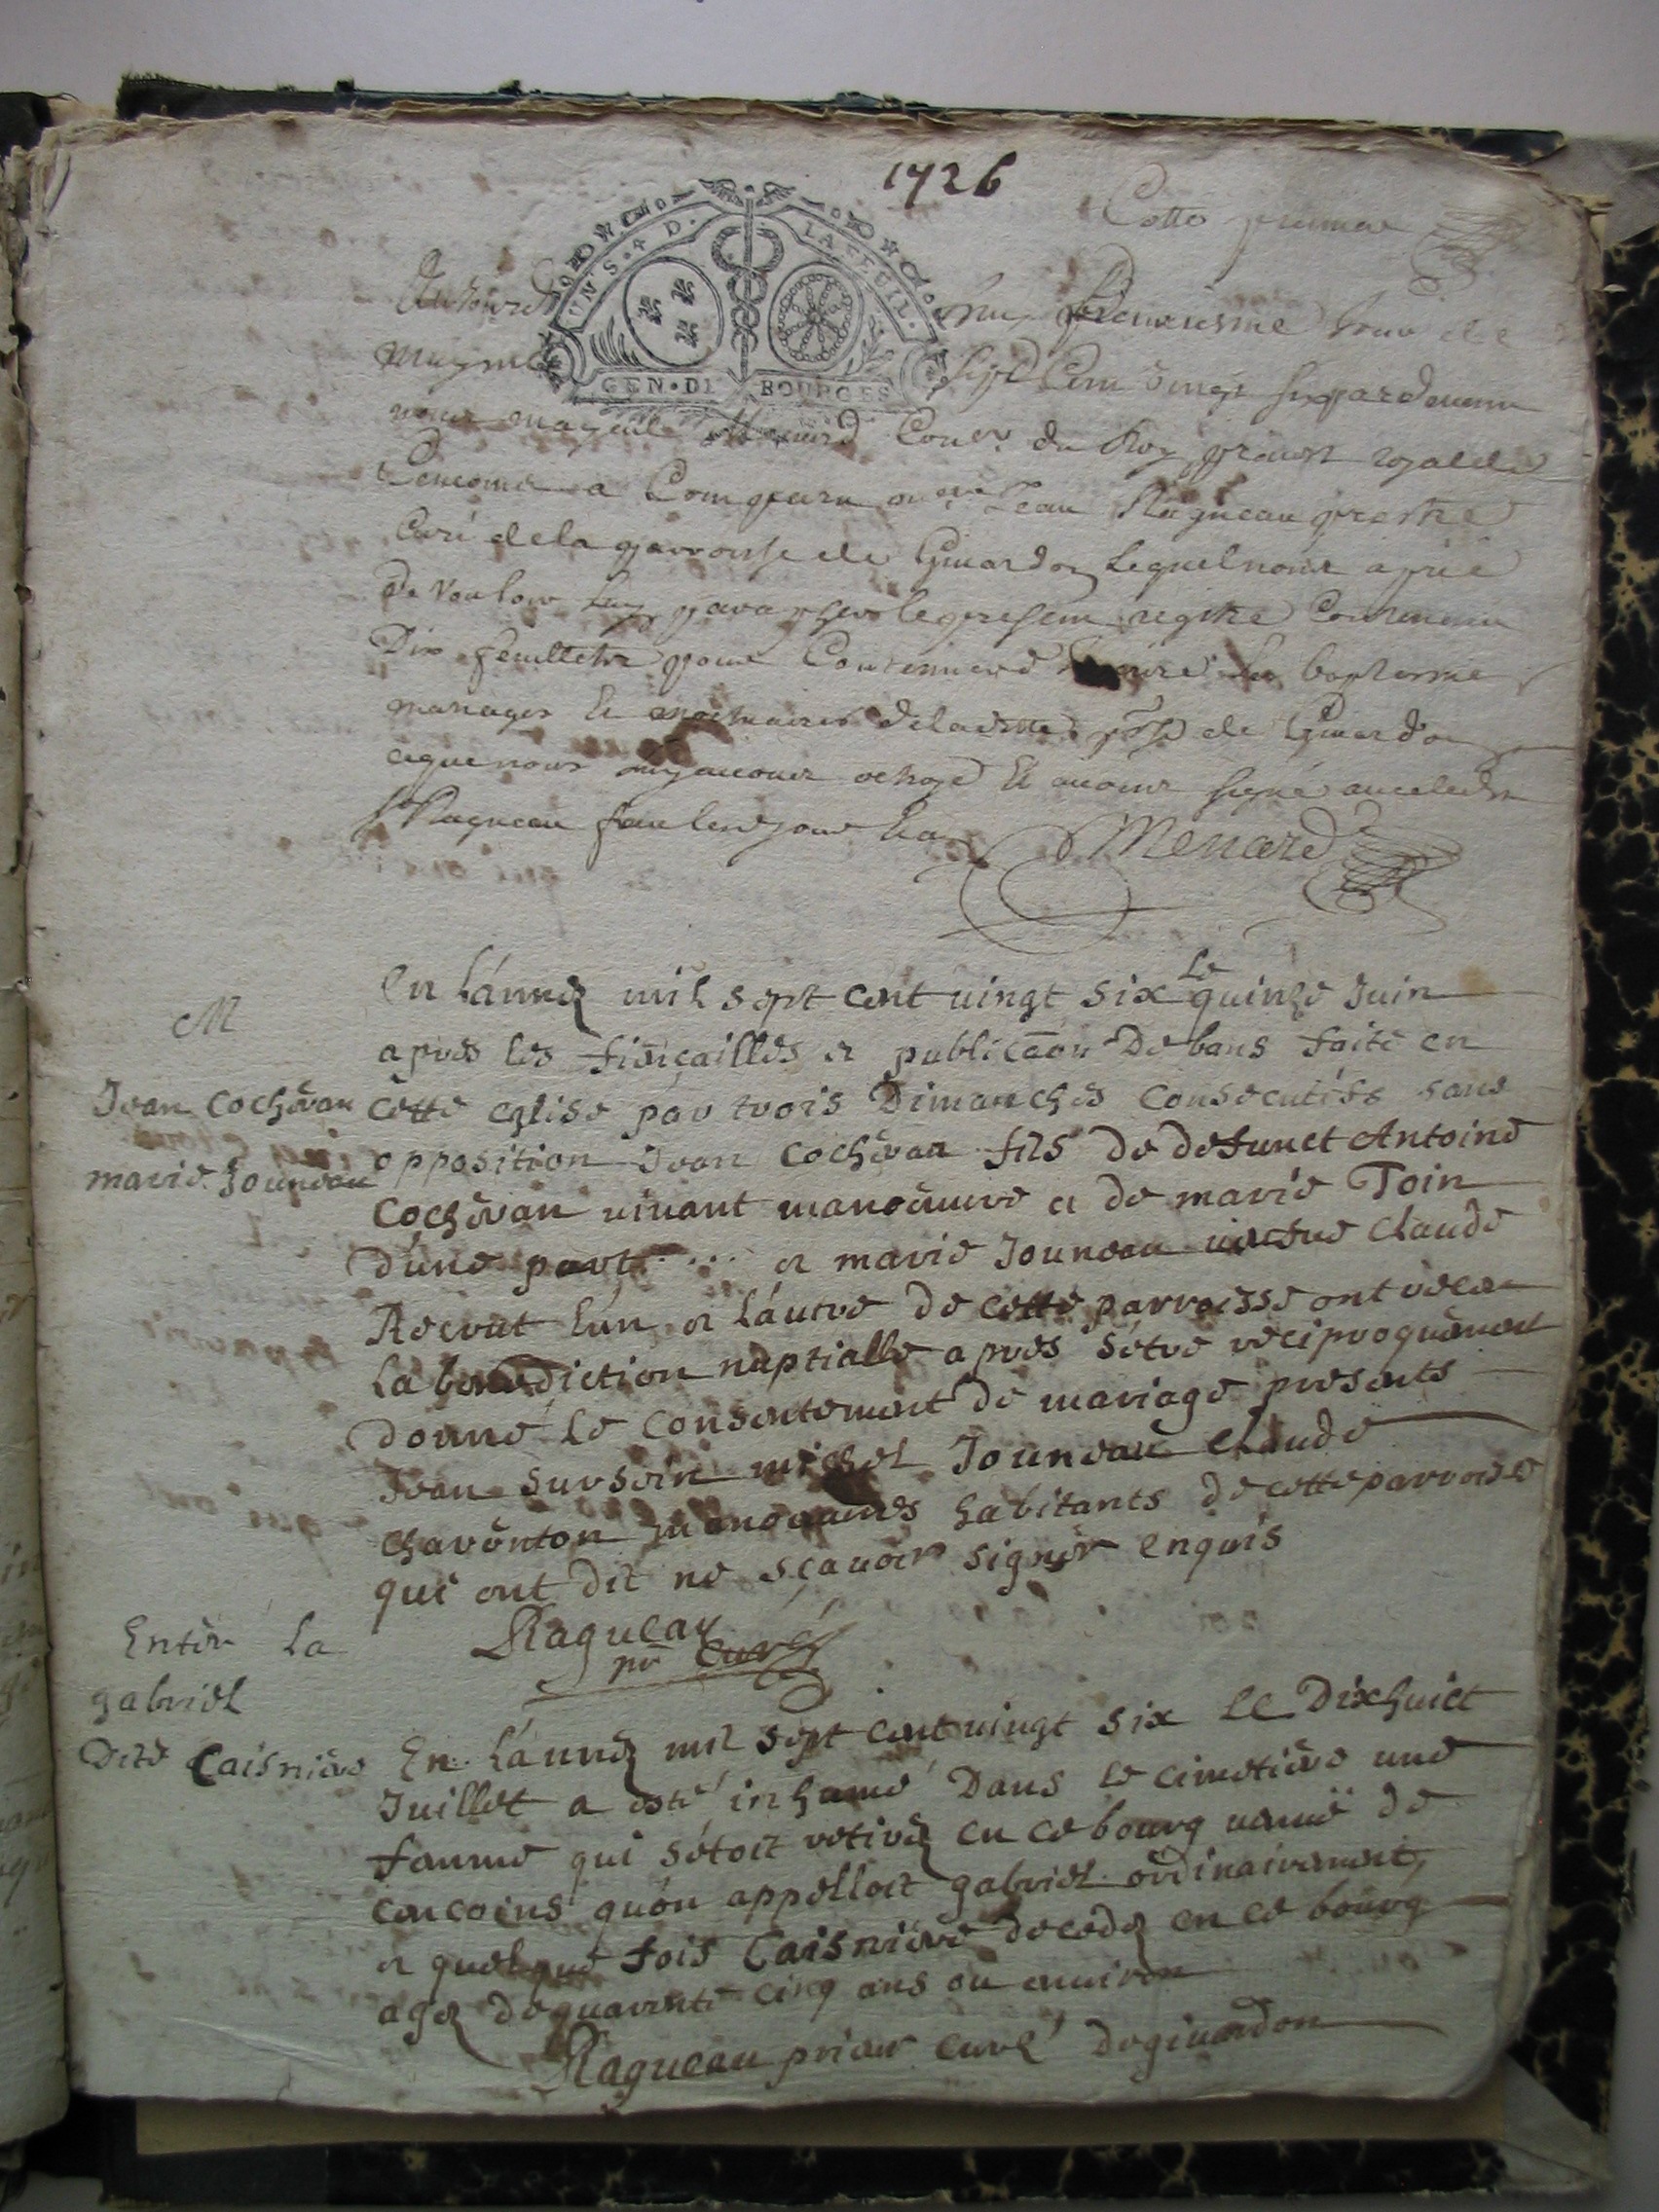 1726
Cotte premiere
UN S. 4 D. LA FEUIL.
GEN. DE BOURGES
Aujourd huy jour de
sept Cent vingt six pardevant
nous Menard Con.er du Roy prevost royal de
Concours a Comparu Jean Ragueau prestre
Curé de la parroisse de Givardon Lequel nous a prié
De Vouloir luy parapher le present registre Contenant
Dix feuillets pour les baptesme
mariages Et mortuaires de la ditte psse de Givardon
ce que nous luy avons octroyé Et avons signé avec ledit
Sr Ragueau
Menard
M
Jean Cochevau
marie Jouneau
En l'anneé mil sept cent vingt six le quinze Juin
apres les fiançailles et publicaon De bans faite en
cette eglise par trois Dimanches consecutifs sans
opposition Jean Cochevau fils de defunct Antoine
Cochevau vivant manoeuvre et de marie Toin
d'une part .... et marie Jouneau veuve claude
l'un et l'autre de cette parroisse ont receu
la benediction nuptialle apres s'etre reciproquement
donné le consentement de mariage presents
Jean sursoin michel Jouneau claude
charenton manoeuvres habitants de cette parroisse
qui ont dit ne sçavoir signer enquis
Ragueau
pr curé
Enter la
gabriel
Dite Caisniere
En l'anneé mil sept cent vingt six le Dixhuict
Juillet a esté inhumé Dans le cimetiere une
femme qui s'etoit retireé en ce bourg venuë de
concoins qu'on appelloit gabriel ordinairement,
et quelque fois Caisniere decedeé en ce bourg
ageé de quarente cinq ans ou environ
Ragueau prieur curé de givardon